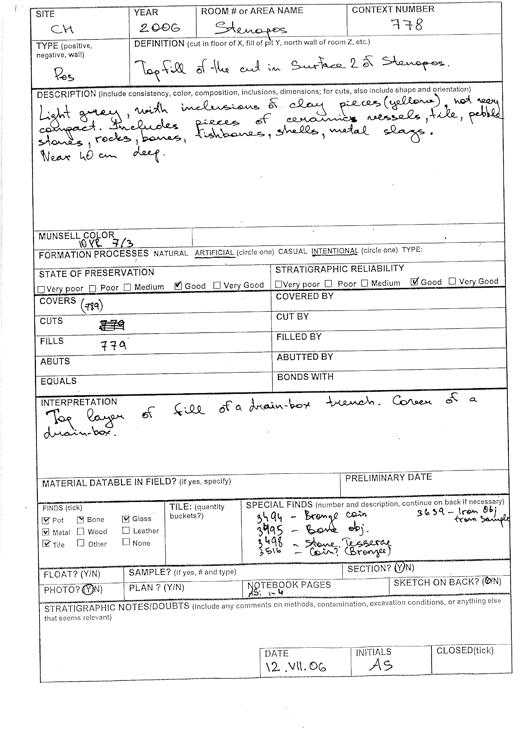 SITE YEAR ROOM # or AREA NAME CONTEXT NUMBER
CH 2006 Stenopos 778
TYPE (positive, negative, wall) DEFINITION (cut in floor of X, fill of pit Y, north wall of room Z, etc.)
Pos Top fill of the cut in Surface 2 of Stenopos.
DESCRIPTION (include consistency, color, composition, inclusions, dimensions; for cuts, also include shape and orientation)
Light grey, with inclusions of clay pieces (yellow), not very
compact. Includes pieces of ceramics vessels, tile, pebble
stones, rocks, bones, fishbones, shells, metal slags.
Near 40 cm deep.
MUNSELL COLOR
10 YR 7/3
FORMATION PROCESSES NATURAL ARTIFICIAL (circle one) CASUAL INTENTIONAL (circle one) TYPE:
STATE OF PRESERVATION STRATIGRAPHIC RELIABILITY
☐ Very poor ☐ Poor ☐ Medium ☑ Good ☐ Very Good ☐ Very poor ☐ Poor ☐ Medium ☑ Good ☐ Very Good
COVERS (789) COVERED BY
CUTS 779 CUT BY
FILLS 779 FILLED BY
ABUTS ABUTTED BY
EQUALS BONDS WITH
INTERPRETATION
Top layer of fill of a drain-box trench. Cover of a
drain-box.
MATERIAL DATABLE IN FIELD? (if yes, specify) PRELIMINARY DATE
FINDS (tick) TILE: (quantity buckets?) SPECIAL FINDS (number and description, continue on back if necessary)
☑ Pot ☑ Bone ☑ Glass
☑ Metal ☐ Wood ☐ Leather
☑ Tile ☐ Other ☐ None
3494 - Bronze coin 3639 - Iron Obj from sample
3495 - Bone obj.
3498 - Stone Tesserae
3516 - Coin? (Bronze)
FLOAT? (Y/N) SAMPLE? (if yes, # and type) SECTION? (Y/N)
PHOTO? (Y/N) PLAN? (Y/N) NOTEBOOK PAGES SKETCH ON BACK? (Y/N)
AS: 1-4
STRATIGRAPHIC NOTES/DOUBTS (include any comments on methods, contamination, excavation conditions, or anything else
that seems relevant)
DATE INITIALS CLOSED(tick)
12.VII.06 AS